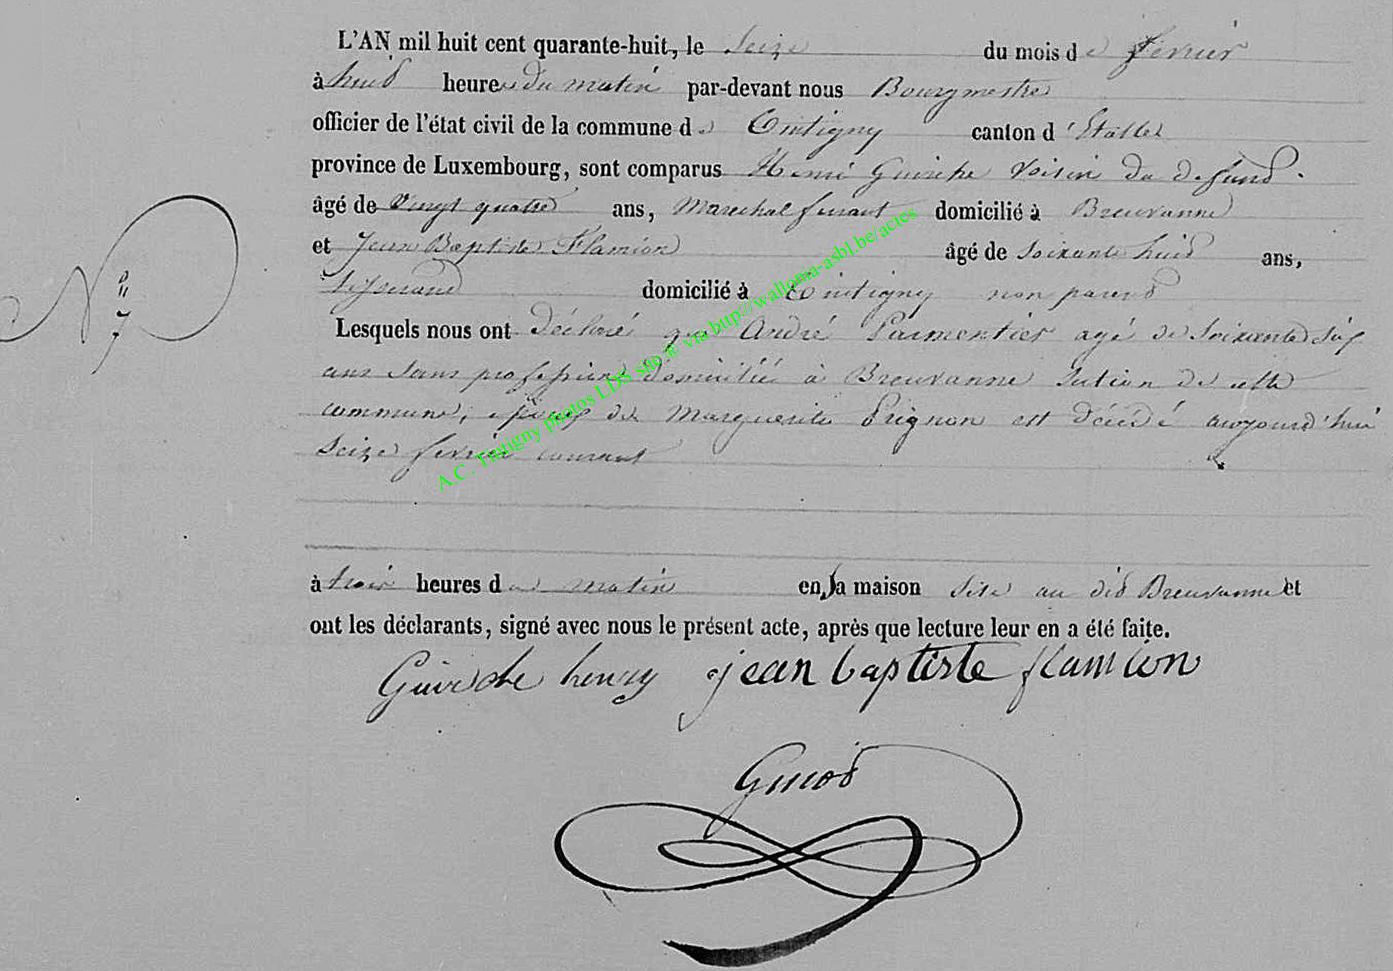 L'AN mil huit cent quarante-huit, le Seize du mois de fevrier
à huid heures du matin par-devant nous Bourgmestre
officier de l'état civil de la commune de Tintigny canton d'Etalle
province de Luxembourg, sont comparus Henri Guirche Voisin du defund.
âgé de Vingt quatre ans, Marechal ferrant domicilié à Breuvanne
et Jean Baptiste Flamion âgé de soixante huid ans,
Tisserand domicilié à Tintigny non parend
N° 7
Lesquels nous ont déclaré que André Parmentier agé de soixante
ans sans profession domicilié à Breuvanne Section de cette
commune, epoux de Marguerite Prignon est décédé aujourd'hui
Seize fevrier courant
à trois heures du matin en sa maison Sise au did Breuvanne et
ont les déclarants, signé avec nous le présent acte, après que lecture leur en a été faite.
Guirche henry jean baptiste flamion
A.C. Tintigny photos LDS site @ via http://wallonia-asbl.be/actes